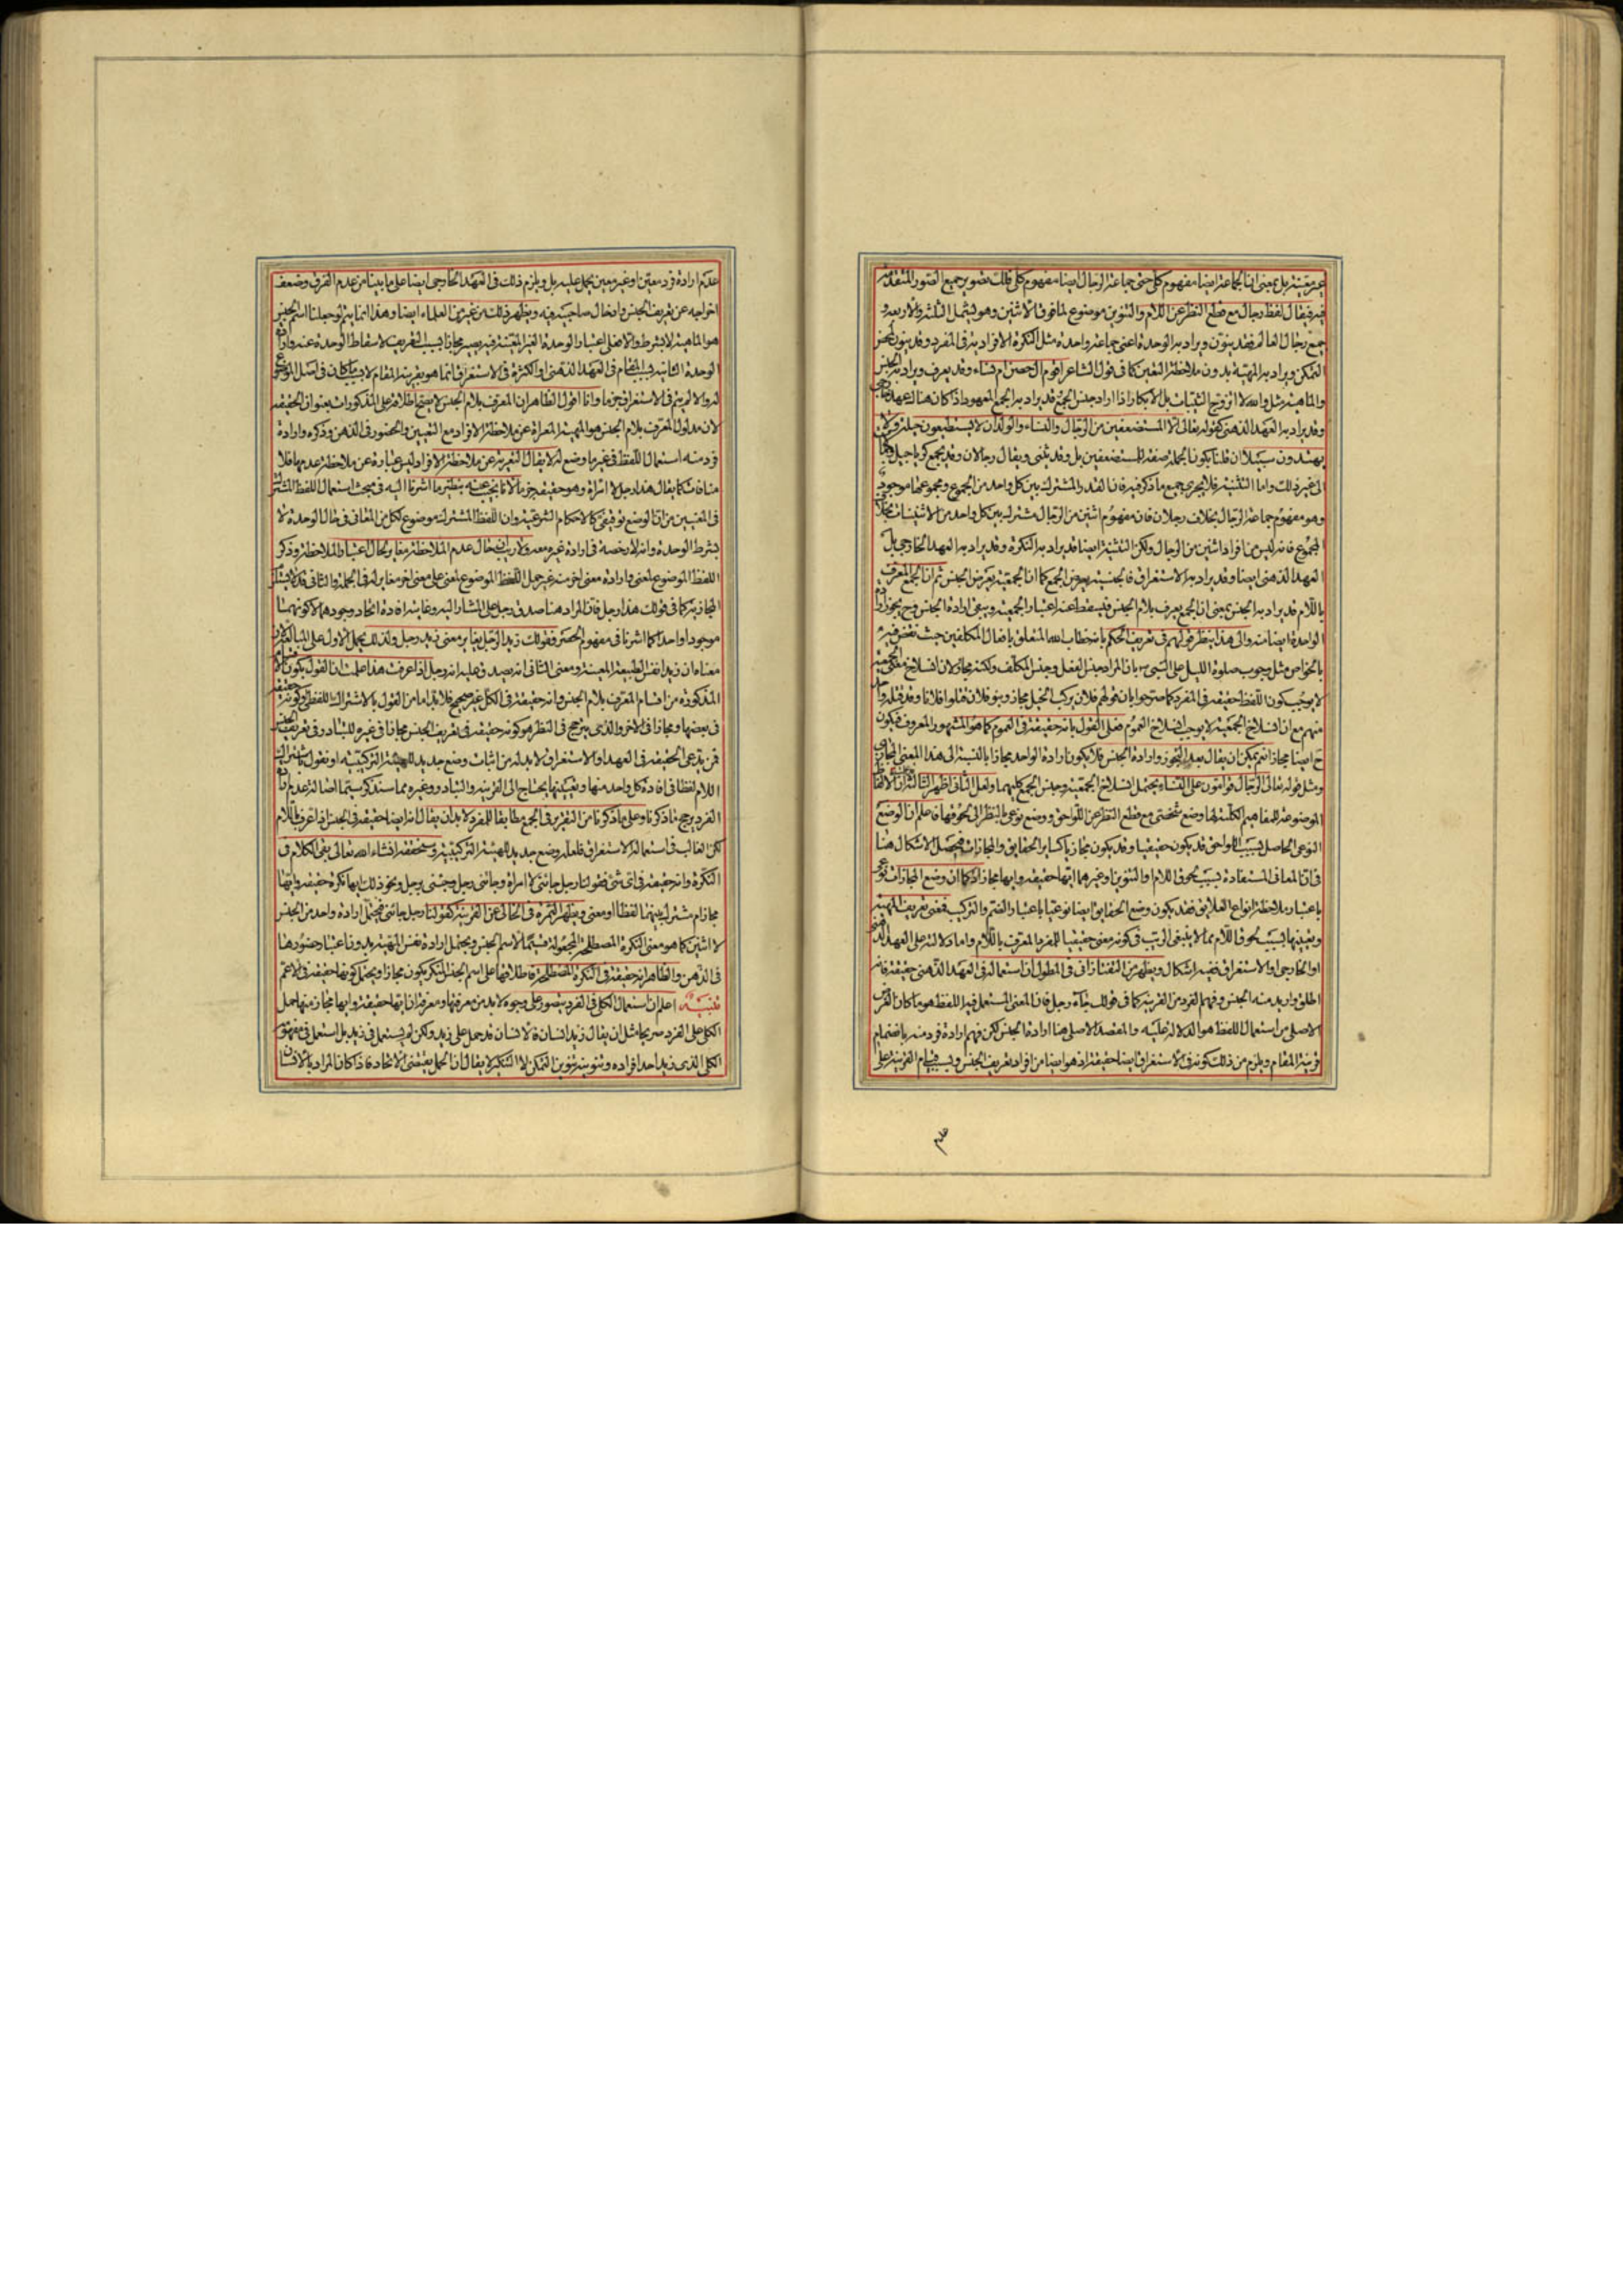 غير معينة بل بمعنى ان الجماعة ايضا مفهوم كلى حتى جماعة الرجال ايضا مفهوم كلى قلت تصوير جميع الصور المتقدمة
فيه فيقال لفظ رجال مع قطع النظر عن اللام والتنوين موضوع لما فوق الاثنين وهو يشمل الثلثة والاربعة و
جميع رجال العالم فقد ينون ويراد به الوحدة اعنى جماعة واحدة مثل النكرة الافرادية فى المفرد وقد ينون لمحض
التمكن ويراد به المهية بدون ملاحظة التعيين كما فى قول الشاعر اقوم ال حصن ام نساء وقد يعرف ويراد به الجنس
والماهية مثل والله لا اتزوج الثيبات بل الابكار اذا اراد جنس الجمع وقد يراد به الجمع المعهود اذا كان هناك عهد
وقد يراد به العهد الذهنى كقوله تعالى الا المستضعفين من الرجال والنساء والولدان لا يستطيعون حيلة ولا
يهتدون سبيلا ان قلنا بكون الجملة صفة للمستضعفين بل وقد يثنى ويقال رجالان وقد يجمع كرجاجيل
الى غير ذلك واما التثنية فلا يجرى جميع ما ذكر فيه فان القدر المشترك بين كل واحد من الجموع ومجموعها موجود
وهو مفهوم جماعة الرجال بخلاف رجلان فان مفهوم اثنين من الرجال مشترك بين كل واحد من الاثنينات
المجموع فانه ليس من افراد اثنين من الرجال ولكن التثنية ايضا قد يراد به النكرة وقد يراد به العهد الخارجى بل
العهد الذهنى ايضا وقد يراد به الاستغراق فالجنسية يعرض الجمع كما ان الجمعية يعرض الجنس ثم ان الجمع المعرف
باللام قد يراد به الجنس بمعنى ان الجمع يعرف بلام الجنس فيسقط عنه اعتبار الجمعية ويبقى ارادة الجنس وح يجوز
الواحد ايضا منه والى هذا ينظر قولهم فى تعريف الحكم بانه خطاب الله المتعلق بافعال المكلفين حيث نقض فيه
بالخواص مثل وجوب صلوة الليل على النبى ص بان المراد جنس الفعل وجنس المكلف ولكنه مجاز لان انسلاخ معنى الجمعية
لا يوجب كون اللفظ حقيقة فى المفرد كما صرحوا بان قولهم فلان يركب الخيل مجاز وبنو فلان قتلوا فلانا وقد قتله
منهم مع ان انسلاخ الجمعية لا يوجب انسلاخ العموم فعلى القول بانه حقيقة فى العموم كما هو المشهور المعروف فيكون
ح ايضا مجازا نعم يمكن ان يقال بعد التجوز وارادة الجنس فلا يكون ارادة الواحد مجازا بالنسبة الى هذا المعنى المجازى
ومثل قوله تعالى الرجال قوامون على النساء يحتمل انسلاخ الجمعية وجنس الجمع كليهما ولعل الثانى اظهر الثالثة ان الالفاظ
الموضوعة للمفاهيم الكلية لها وضع شخصى مع قطع النظر عن اللواحق ووضع نوعى بالنظر الى لحوقها فاعلم ان الوضع
النوعى الحاصل بسبب اللواحق قد يكون حقيقيا وقد يكون مجازيا كساير الحقايق والمجازات فيحصل الاشكال هنا
فى ان المعانى المستفادة بسبب لحوق اللام والتنوين وغيرهما ايها حقيقة وايها مجاز اذ كما ان وضع المجازات نوعى
باعتبار ملاحظة انواع العلايق فقد يكون وضع الحقايق ايضا نوعيا باعتبار الضم والتركيب فنقول تعريف المهية
وتعيينها بسبب لحوق اللام مما لا ينبغى الريب فى كونه معنى حقيقيا للمفرد المعرف باللام واما دلالته على العهد الذهنى
او الخارجى او الاستغراق ففيه اشكال ويظهر من التفتازانى فى المطول ان استعماله فى العهد الذهنى حقيقة فانه
اطلق واريد منه الجنس وفهم الفرد من القرينة كما فى قولك جاء رجل فان المعنى المستعمل فيه اللفظ هو ما كان الغرض
الاصلى من استعمال اللفظ هو الدلالة عليه والمقصد الاصلى هنا ارادة الجنس لكن فهم ارادة فرد منه بانضمام
قرينة المقام ويلزم من ذلك كونه فى الاستغراق ايضا حقيقة اذ هو ايضا من افراد تعريف الجنس وبسبب قيام القرينة على
عدم
عدم ارادة فرد معين او غير معين يحمل عليه بل ويلزم ذلك فى العهد الخارجى ايضا على ما بينا من عدم الفرق وضعف
اخراجه عن تعريف الجنس وادخال صاحبيه فيه ويظهر ذلك من غيره من العلماء ايضا وهذا انما يتم لو جعلنا اسم الجنس
هو الماهية لا بشرط والا فعلى اعتبار الوحدة الغير المعينة فيه يصير مجازا بسبب التعريف لاسقاط الوحدة عنه وارادة
الوحدة الثانية فى العهد الذهنى او الكثرة فى الاستغراق انما هو بقرينة المقام لا بسبب ما كان فى اصل الموضوع
له والا لم يتم فى الاستغراق جزما وانا اقول الظاهر ان المعرف بلام الجنس لا يصح اطلاقه على المذكورات بعنوان الحقيقة
لان مدلول المعرف بلام الجنس هو المهية المعراة عن ملاحظة الافراد مع التعيين والحضور فى الذهن وذكره وارادة
فرد منه استعمال اللفظ فى غير ما وضع له لا يقال التعرية عن ملاحظة الافراد ليس عبارة عن ملاحظة عدمها فلا
منافات كما يقال هذا رجل لا امراة وهو حقيقة جزما لانا نجيب عنه بنظير ما اشرنا اليه فى مبحث استعمال اللفظ المشترك
فى المعنيين من ان الوضع توقيفى كالاحكام الشرعية وان اللفظ المشترك موضوع لكل من المعانى فى حال الوحدة لا
بشرط الوحدة وانه لا رخصة فى ارادة غيره معه ولا ريب ان حال عدم الملاحظة مغاير لحال اعتبار الملاحظة وذكر
اللفظ الموضوع لمعنى وارادة معنى اخر منه غير حمل اللفظ الموضوع لمعنى على معنى اخر مغاير له فى الجملة والثانى قد لا يستلزم
المجازية كما فى قولك هذا رجل فان المراد هنا صدق رجل على المشار اليه وغايته افادة اتحاد وجودهما لا كونهما
موجودا واحدا كما اشرنا فى مفهوم الحصر فقولك زيد الرجل يغاير معنى زيد رجل ولذلك يحمل الاول على المبالغة لان
معناه ان زيدا نفس الطبيعة المعينة ومعنى الثانى انه يصدق عليه انه رجل اذا عرفت هذا علمت ان القول بكون الاقسام
المذكورة من اقسام المعرف بلام الجنس وانه حقيقة فى الكل غير صحيح فلا بد اما من القول بالاشتراك اللفظى او كونه حقيقة
فى بعضها ومجازا فى الاخر والذى يترجح فى النظر هو كونه حقيقة فى تعريف الجنس مجازا فى غيره للتبادر فى تعريف الجنس
فمن يدعى الحقيقة فى العهد او الاستغراق لا بد له من اثبات وضع جديد للهيئة التركيبية او نقول باشتراك
اللام لفظا فى افادة كل واحد منها وتعيينها يحتاج الى القرينة والتبادر وغيره مما سنذكر سيما اصالة عدم ارادة
الفرد يرجح ما ذكرنا وعلى ما ذكرنا من التقرير فى الجمع مطابقا للمفرد لا بد ان يقال انه ايضا حقيقة فى الجنس اذا عرف باللام
لكن الغالب فى استعماله الاستغراق فلعله وضع جديد للهيئة التركيبية وسنحققه انشاء الله تعالى بقى الكلام فى
النكرة وانه حقيقة فى اى شئ فقولنا رجل جائنى لا امراة وجائنى رجل وجئنى برجل ونحو ذلك ايها نكرة حقيقة وايها
مجاز ام مشترك بينها لفظا او معنى ويظهر الثمرة فى الخالى عن القرينة كقولنا رجل جائنى فيحتمل ارادة واحد من الجنس
لا اثنين كما هو معنى النكرة المصطلحة المجعولة قسيما لاسم الجنس ويحتمل ارادة نفس المهية بدون اعتبار حضورها
فى الذهن والظاهر انه حقيقة فى النكرة المصطلحة فاطلاقها على اسم الجنس المنكر يكون مجازا ويحتمل كونها حقيقة فى الاعم
تنبيه اعلم ان استعمال الكلى فى الفرد يتصور على وجوه لا بد من معرفتها ومعرفة ان ايها حقيقة وايها مجاز منها حمل
الكلى على الفرد صريحا مثل ان يقال زيد انسان فالانسان قد حمل على زيد ولكن لم يستعمل فى زيد بل استعمل فى مفهوم
الكلى الذى زيد احد افراده وتنوينه تنوين التمكن لا التنكير لا يقال ان الحمل يقتضى الاتحاد فاذا كان المراد بالانسان